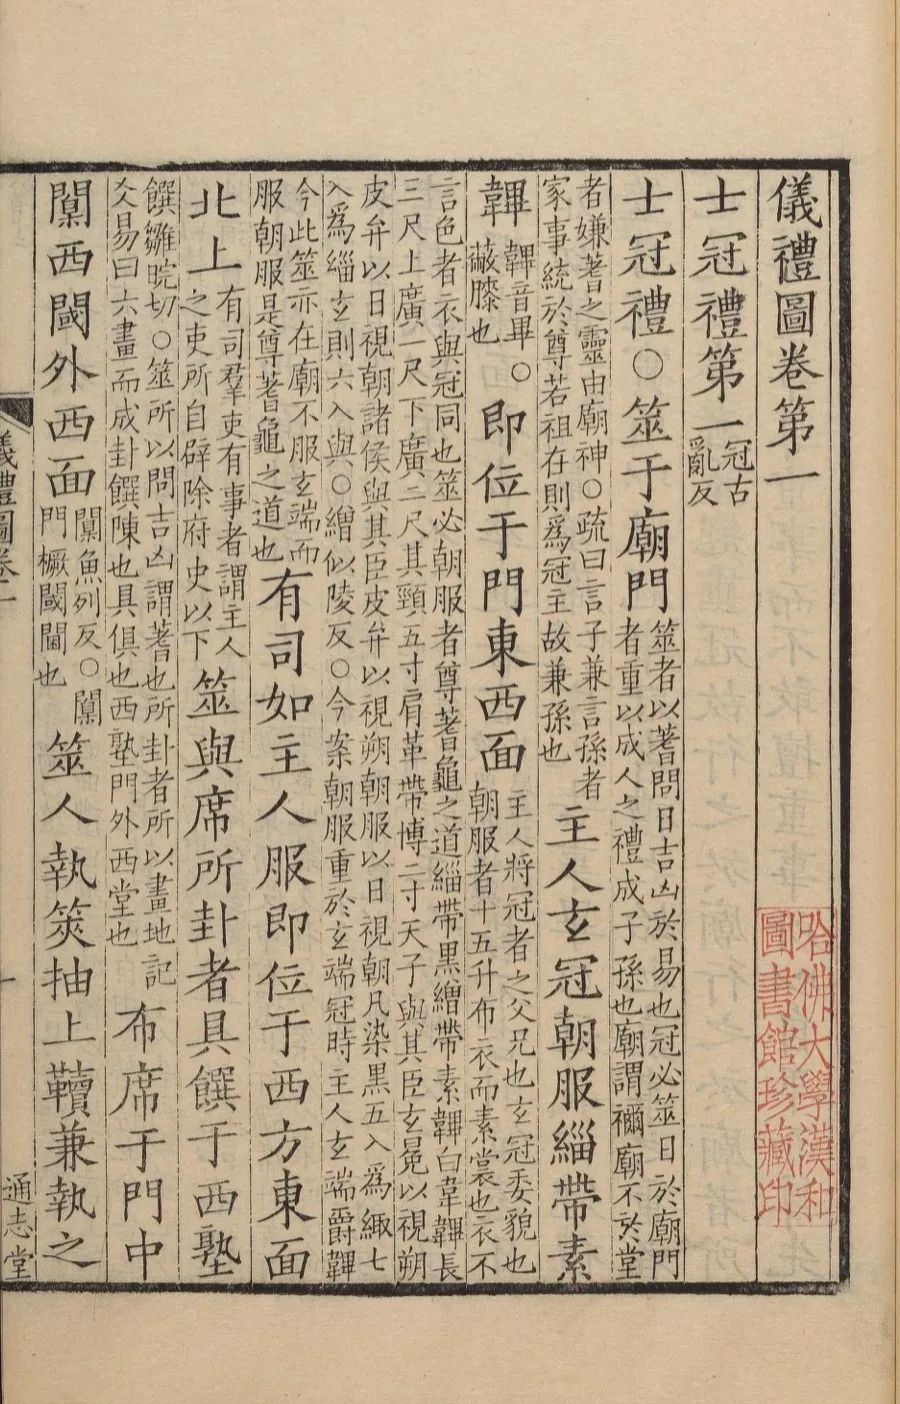 儀禮圖卷第一
士冠禮第一冠古亂反
士冠禮○筮于廟門筮者以蓍問日吉凶於易也冠必筮日於廟門者重以成人之禮成子孫也廟謂禰廟不於堂
者嫌蓍之靈由廟神○疏曰言子兼言孫者家事統於尊若祖在則爲冠主故兼孫也主人玄冠朝服緇帶素
韠韠音畢蔽膝也○即位于門東西面主人將冠者之父兄也玄冠委貌也朝服者十五升布衣而素裳也衣不
言色者衣與冠同也筮必朝服者尊蓍龜之道緇帶黑繒帶素韠白韋韠長三尺上廣一尺下廣二尺其頸五寸肩革帶博二寸天子與其臣玄冕以視朔
皮弁以日視朝諸侯與其臣皮弁以視朔朝服以日視朝凡染黑五入爲緅七入爲緇玄則六入與○繒似陵反○今案朝服重於玄端冠時主人玄端爵韠
今此筮亦在廟不服玄端而服朝服是尊蓍龜之道也有司如主人服即位于西方東面
北上有司羣吏有事者謂主人之吏所自辟除府史以下筮與席所卦者具饌于西塾
饌雛晥切○筮所以問吉凶謂蓍也所卦者所以畫地記爻易曰六畫而成卦饌陳也具俱也西塾門外西堂也布席于門中
闑西閾外西面闑魚列反○闑門橛閾閫也筮人執筴抽上韇兼執之
儀禮圖卷一
一
通志堂
哈佛大學漢和
圖書館珍藏印